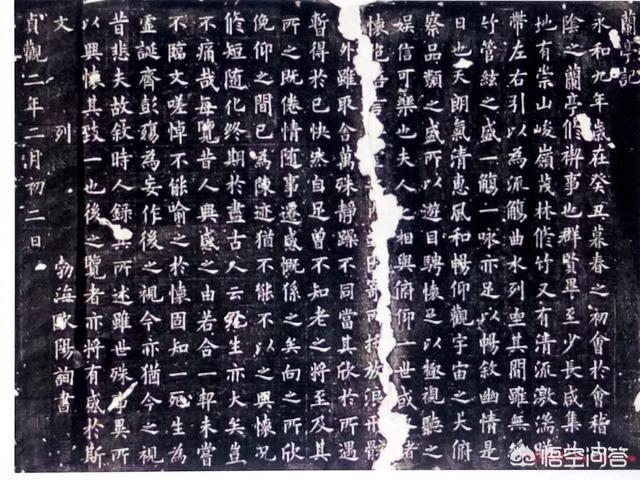 蘭亭記
永和九年歲在癸丑暮春之初會於會稽
陰之蘭亭修禊事也群賢畢至少長咸集
地有崇山峻嶺茂林修竹又有清流激湍暎
帶左右引以為流觴曲水列坐其間雖無
竹管絃之盛一觴一咏亦足以暢敘幽情是
日也天朗氣清惠風和暢仰觀宇宙之大俯
察品類之盛所以遊目騁懷足以極視聽之
娛信可樂也夫人之相與俯仰一世或諸
懷言寄所放浪形骸
外雖取舍萬殊靜躁不同當其欣於所遇
暫得於己快然自足曾不知老之將至及其
所之既倦情隨事遷感慨係之矣向之所欣
俛仰之間已為陳迹猶不能不以之興懷況
修短隨化終期於盡古人云死生亦大矣豈
不痛哉每覽昔人興感之由若合一契未嘗
不臨文嗟悼不能喻之於懷固知一死生為
虛誕齊彭殤為妄作後之視今亦猶今之視
昔悲夫故敘時人錄其所述雖世殊事異所
以興懷其致一也後之覽者亦將有感於斯
文 列 勃海歐陽詢書
貞觀二年二月初二日
悟空问答